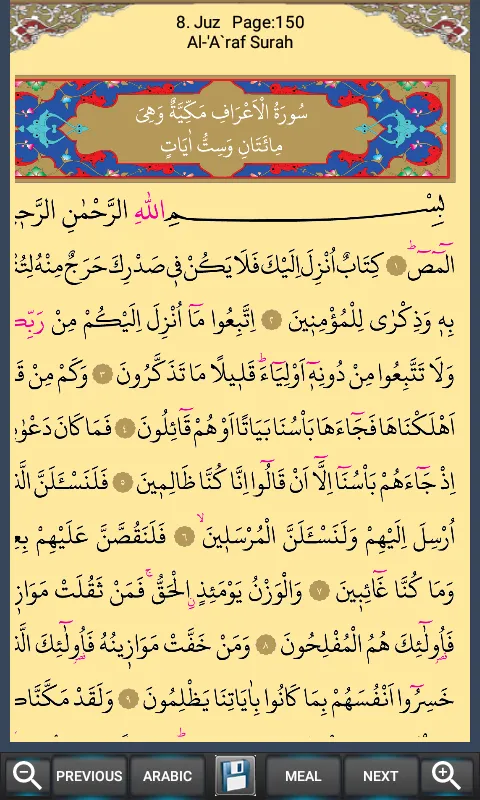 8. Juz Page:150
Al-'A`raf Surah
سُورَةُ الْاَعْرَافِ مَكِّيَّةٌ وَهِيَ
مِائَتَانِ وَسِتُّ اٰيَاتٍ
بِسْمِ اللّٰهِ الرَّحْمٰنِ
الٓمٓصٓ ۚ ﴿١﴾ كِتَابٌ اُنْزِلَ اِلَيْكَ فَلَا يَكُنْ ف۪ي صَدْرِكَ حَرَجٌ مِنْهُ
بِه۪ وَذِكْرٰى لِلْمُؤْمِن۪ينَ ﴿٢﴾ اِتَّبِعُوا مَٓا اُنْزِلَ اِلَيْكُمْ مِنْ
وَلَا تَتَّبِعُوا مِنْ دُونِه۪ٓ اَوْلِيَٓاءَۜ قَل۪يلًا مَا تَذَكَّرُونَ ﴿٣﴾ وَكَمْ مِنْ
اَهْلَكْنَاهَا فَجَٓاءَهَا بَأْسُنَا بَيَاتًا اَوْ هُمْ قَٓائِلُونَ ﴿٤﴾ فَمَا كَانَ
اِذْ جَٓاءَهُمْ بَأْسُنَٓا اِلَّٓا اَنْ قَالُٓوا اِنَّا كُنَّا ظَالِم۪ينَ ﴿٥﴾ فَلَنَسْـَٔلَنَّ
اُرْسِلَ اِلَيْهِمْ وَلَنَسْـَٔلَنَّ الْمُرْسَل۪ينَۙ ﴿٦﴾ فَلَنَقُصَّنَّ عَلَيْهِمْ
وَمَا كُنَّا غَٓائِب۪ينَ ﴿٧﴾ وَالْوَزْنُ يَوْمَئِذٍۨ الْحَقُّۚ فَمَنْ ثَقُلَتْ
فَاُو۬لٰٓئِكَ هُمُ الْمُفْلِحُونَ ﴿٨﴾ وَمَنْ خَفَّتْ مَوَاز۪ينُهُ فَاُو۬لٰٓئِكَ
خَسِرُٓوا اَنْفُسَهُمْ بِمَا كَانُوا بِاٰيَاتِنَا يَظْلِمُونَ ﴿٩﴾ وَلَقَدْ
PREVIOUS ARABIC MEAL NEXT